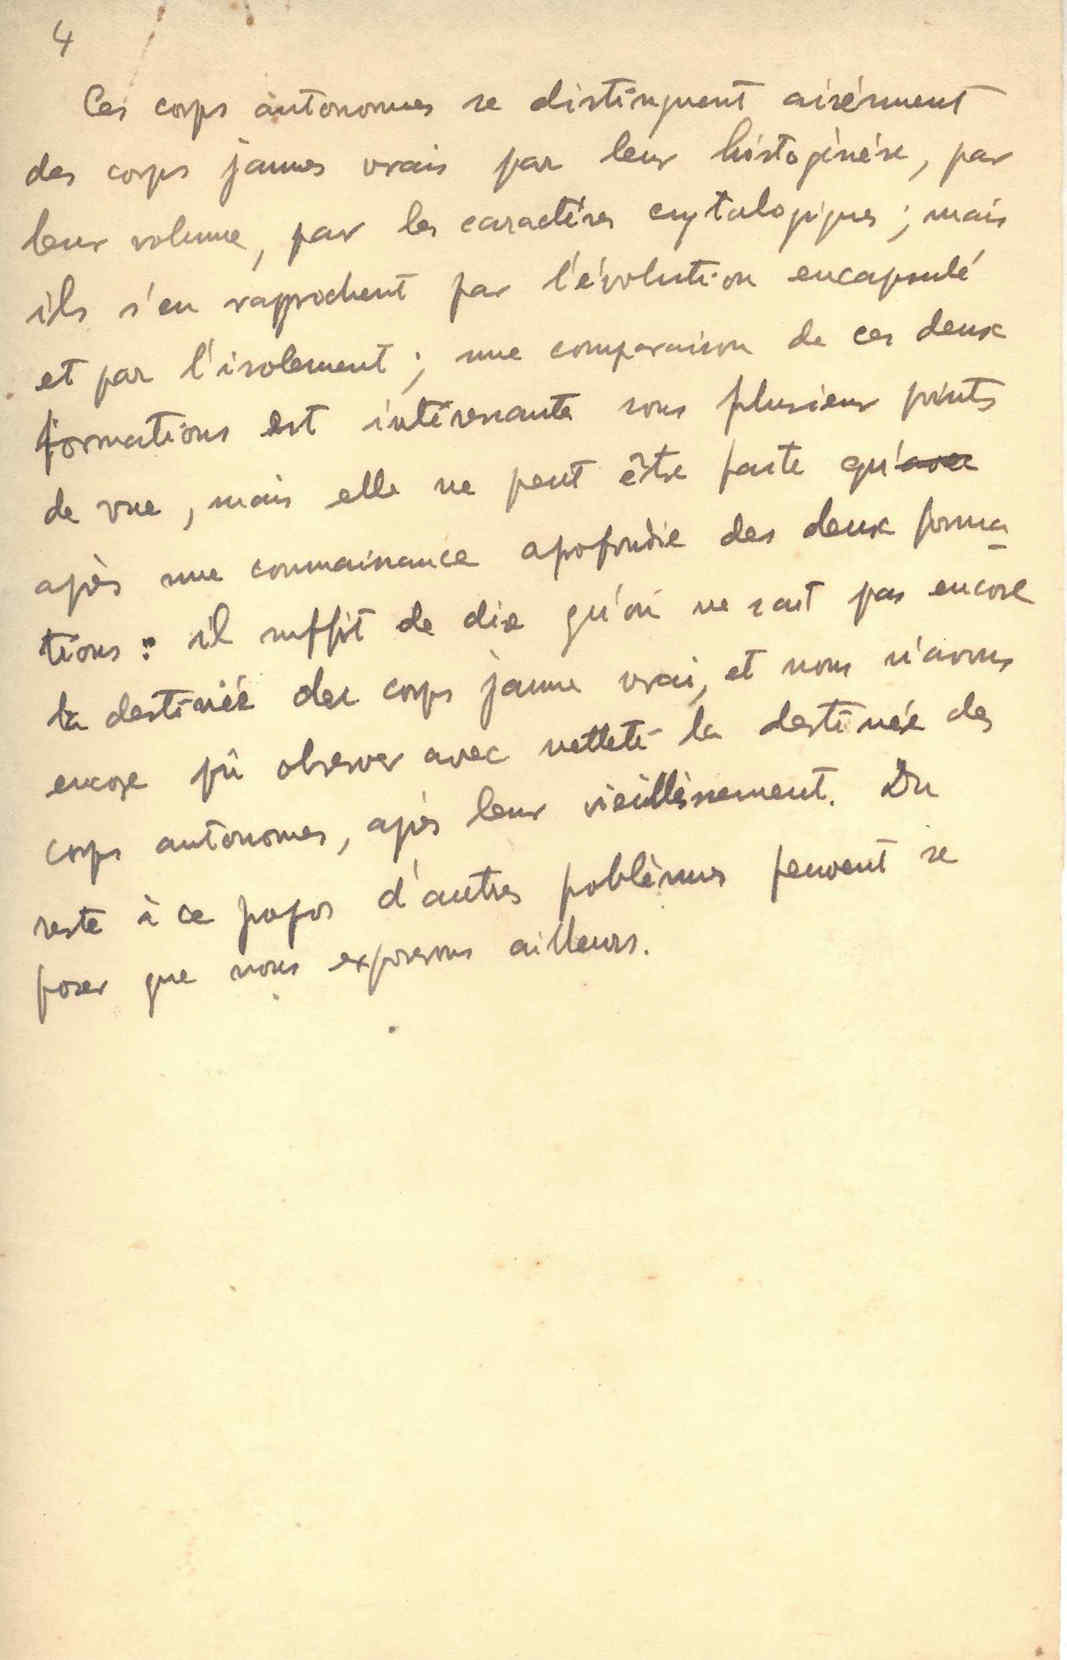 4
Ces corps autonomes se distinguent aisément
des corps jaunes vrais par leur histogénèse, par
leur volume, par les caractères cytologiques ; mais
ils s'en rapprochent par l'évolution encapsulé
et par l'isolement ; une comparaison de ces deux
formations est intéressante sous plusieur points
de vue, mais elle ne peut être faite qu'avec
après une connaissance apofondie des deux forma_
tions : il suffit de dire qu'on ne sait pas encore
la destinée des corps jaune vrai, et nous n'avons
encore pû observer avec netteté la destinée des
corps autonomes, après leur vieillissement. Du
reste à ce propos d'autres poblèmes peuvent se
poser que nous exposerons ailleurs.